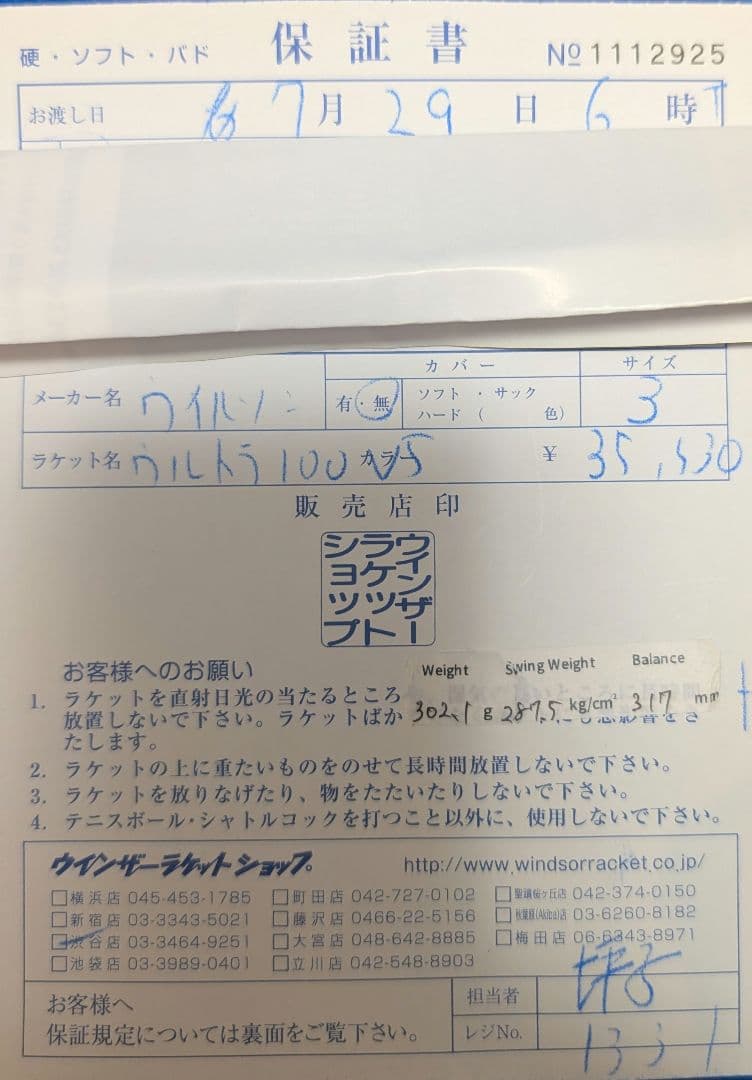 硬・ソフト・バド 保証書 № 1112925
お渡し日 7月 29日 6時
メーカー名 ウイルソン
カバー
有・無
ソフト・サック
ハード( 色)
サイズ
3
ラケット名 ウルトラ100 V5 カラー ¥ 35,530
販売店印
ウインザーラケットショップ
お客様へのお願い
Weight Swing Weight Balance
302.1 g 287.5 kg/cm² 317 mm
1. ラケットを直射日光の当たるところ
放置しないで下さい。ラケットばか
にも悪影響をき
たします。
2. ラケットの上に重たいものをのせて長時間放置しないで下さい。
3. ラケットを放りなげたり、物をたたいたりしないで下さい。
4. テニスボール・シャトルコックを打つこと以外に、使用しないで下さい。
ウインザーラケットショップ。 http://www.windsorracket.co.jp/
□横浜店 045-453-1785 □町田店 042-727-0102 □聖蹟桜ヶ丘店 042-374-0150
□新宿店 03-3343-5021 □藤沢店 0466-22-5156 □秋葉原(Akiba)店 03-6260-8182
□渋谷店 03-3464-9251 □大宮店 048-642-8885 □梅田店 06-6343-8971
□池袋店 03-3989-0401 □立川店 042-548-8903
お客様へ
保証規定については裏面をご覧下さい。
担当者
レジNo. 1331